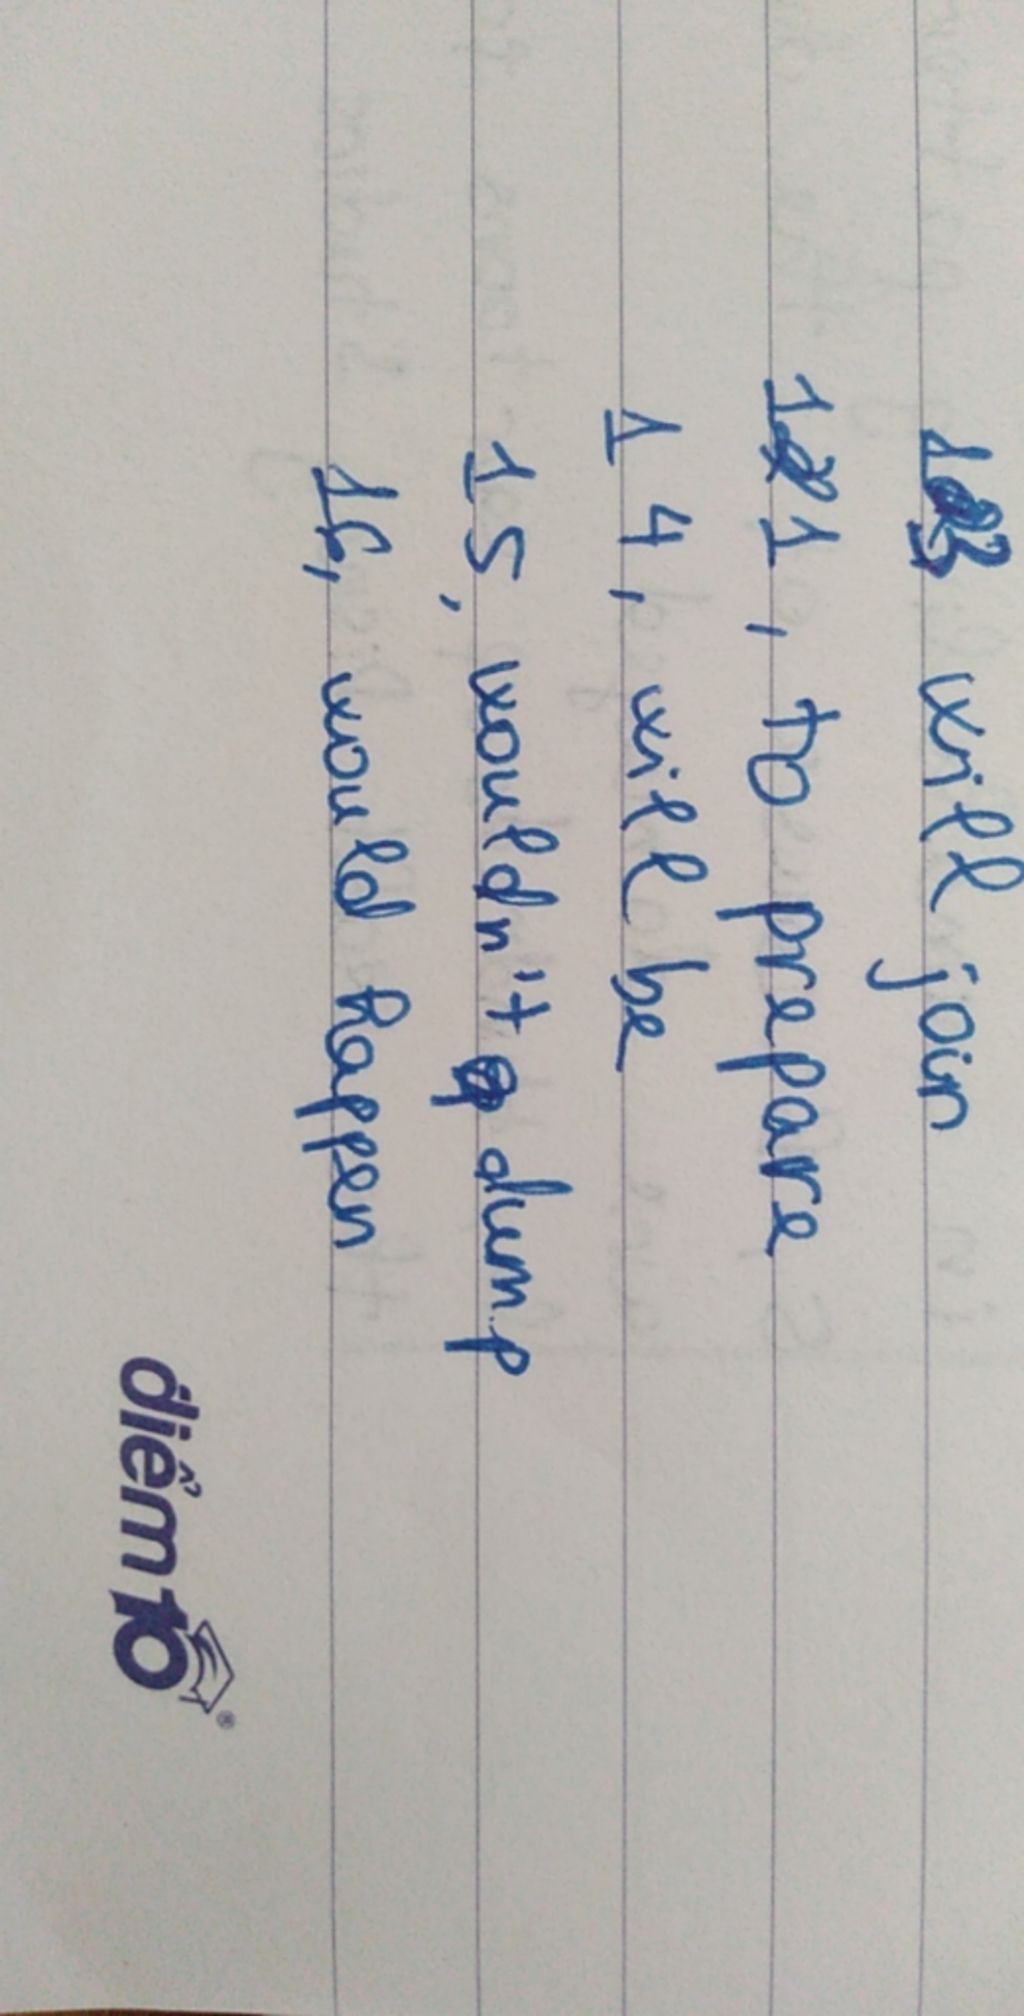 13 will join
11, to prepare
14, will be
15, wouldn't dump
16, would happen
điểm 10